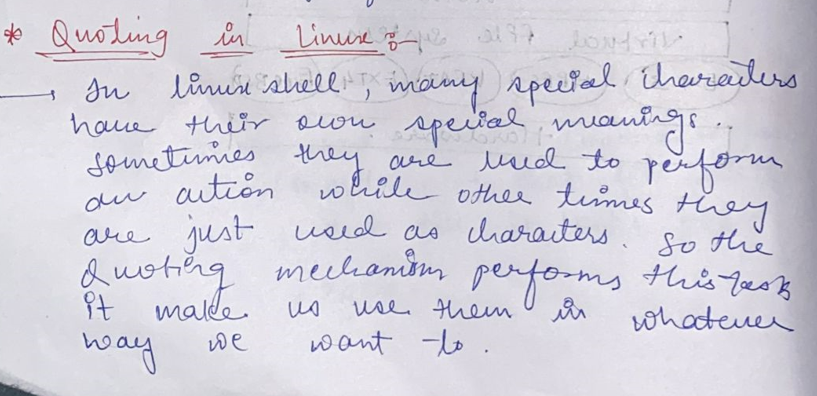 * Quoting in Linux :-
→ In linux shell, many special characters
have their own special meanings.
Sometimes they are used to perform
an action while other times they
are just used as characters. So the
Quoting mechanism performs this task
it make us use them in whatever
way we want to.